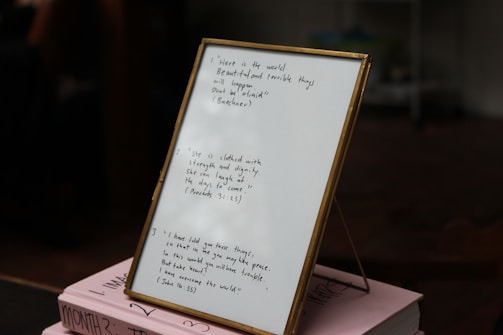 1 "Here is the world.
Beautiful and terrible things
will happen.
Dont be afraid"
(Buechner)
2 "She is clothed with
strength and dignity
she can laugh at
the days to come."
(Proverbs 31:25)
3 "I have told you these things,
so that in me you may have peace.
In this world you will have trouble.
But take heart!
I have overcome the world"
(John 16:33)
MONTH 2: